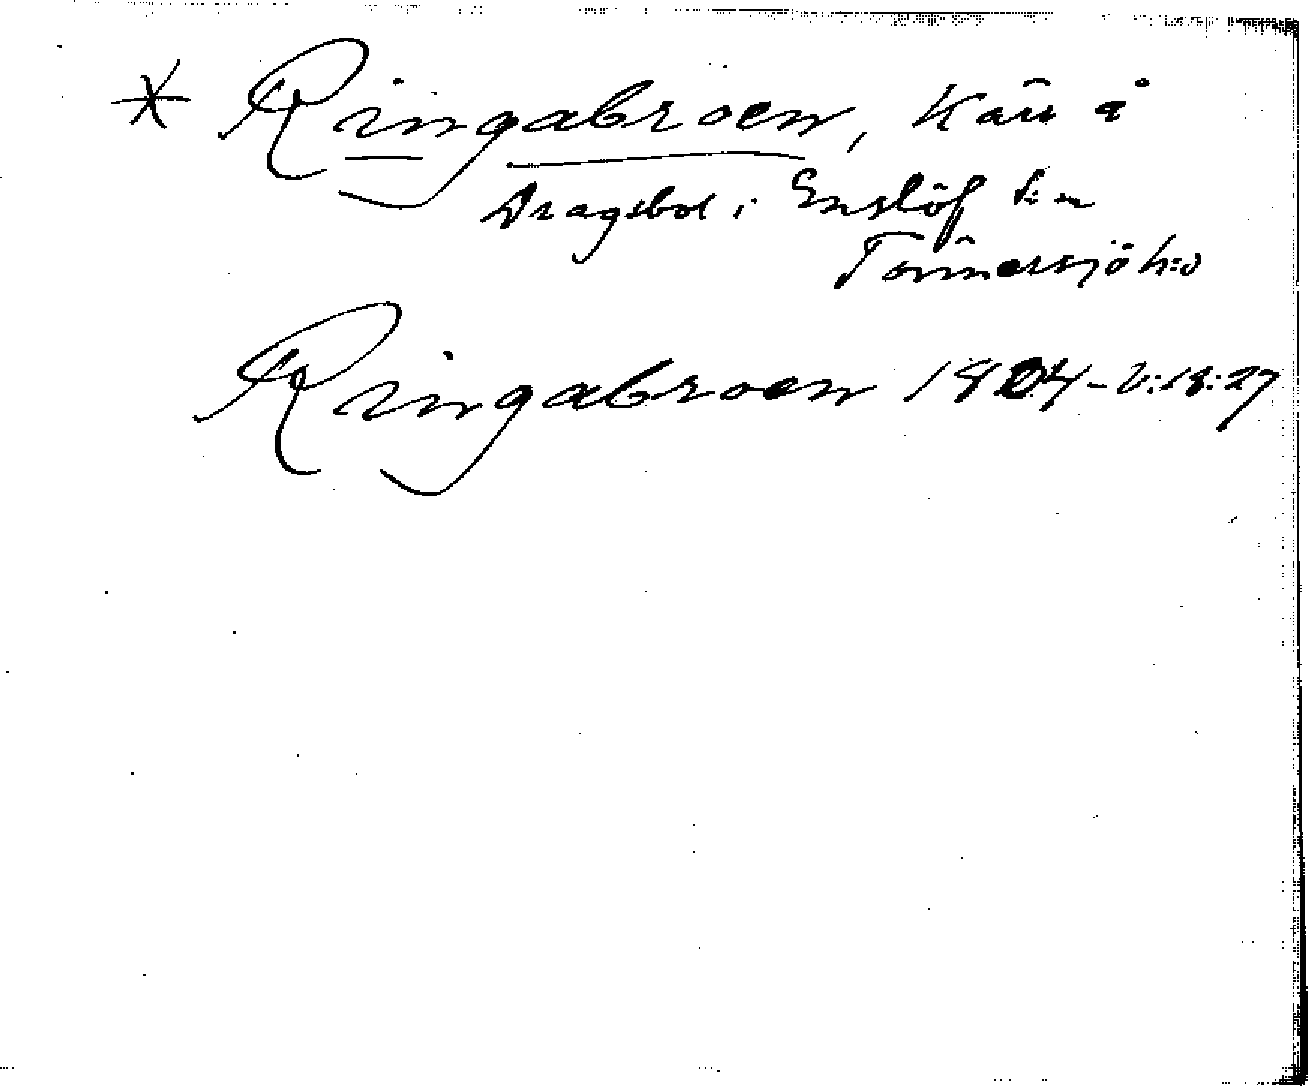 * Ringabroen, Kärr å
Dragsbol i Enslöf s:n
Tönnersjö h:d
Ringabroen 1804-2:18:27